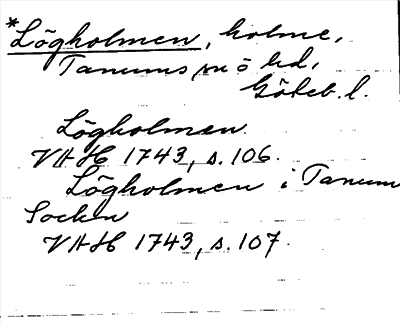 *Lögholmen, holme,
Tanums sn o hd,
Göteb. l.
Lögholmen.
VAH 1743, s. 106.
Lögholmen i Tanum
Socken
VAH 1743, s. 107.